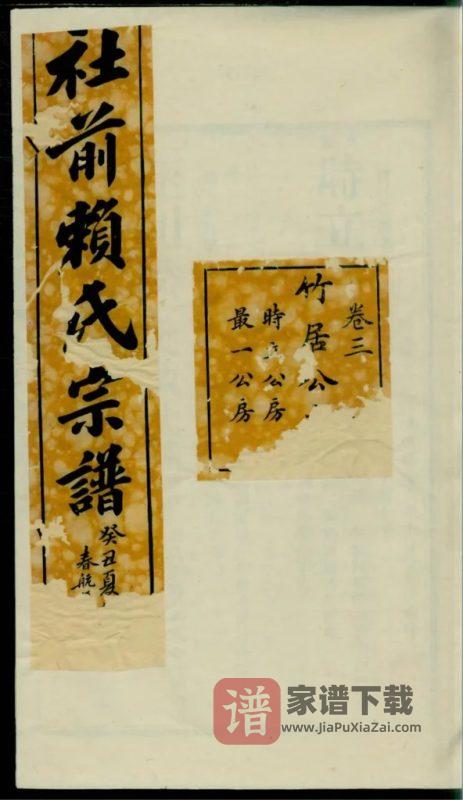 社前賴氏宗譜
癸丑夏
春航
卷三
竹居公
時 公房
最一公房
谱 家谱下载
www.JiaPuXiaZai.com